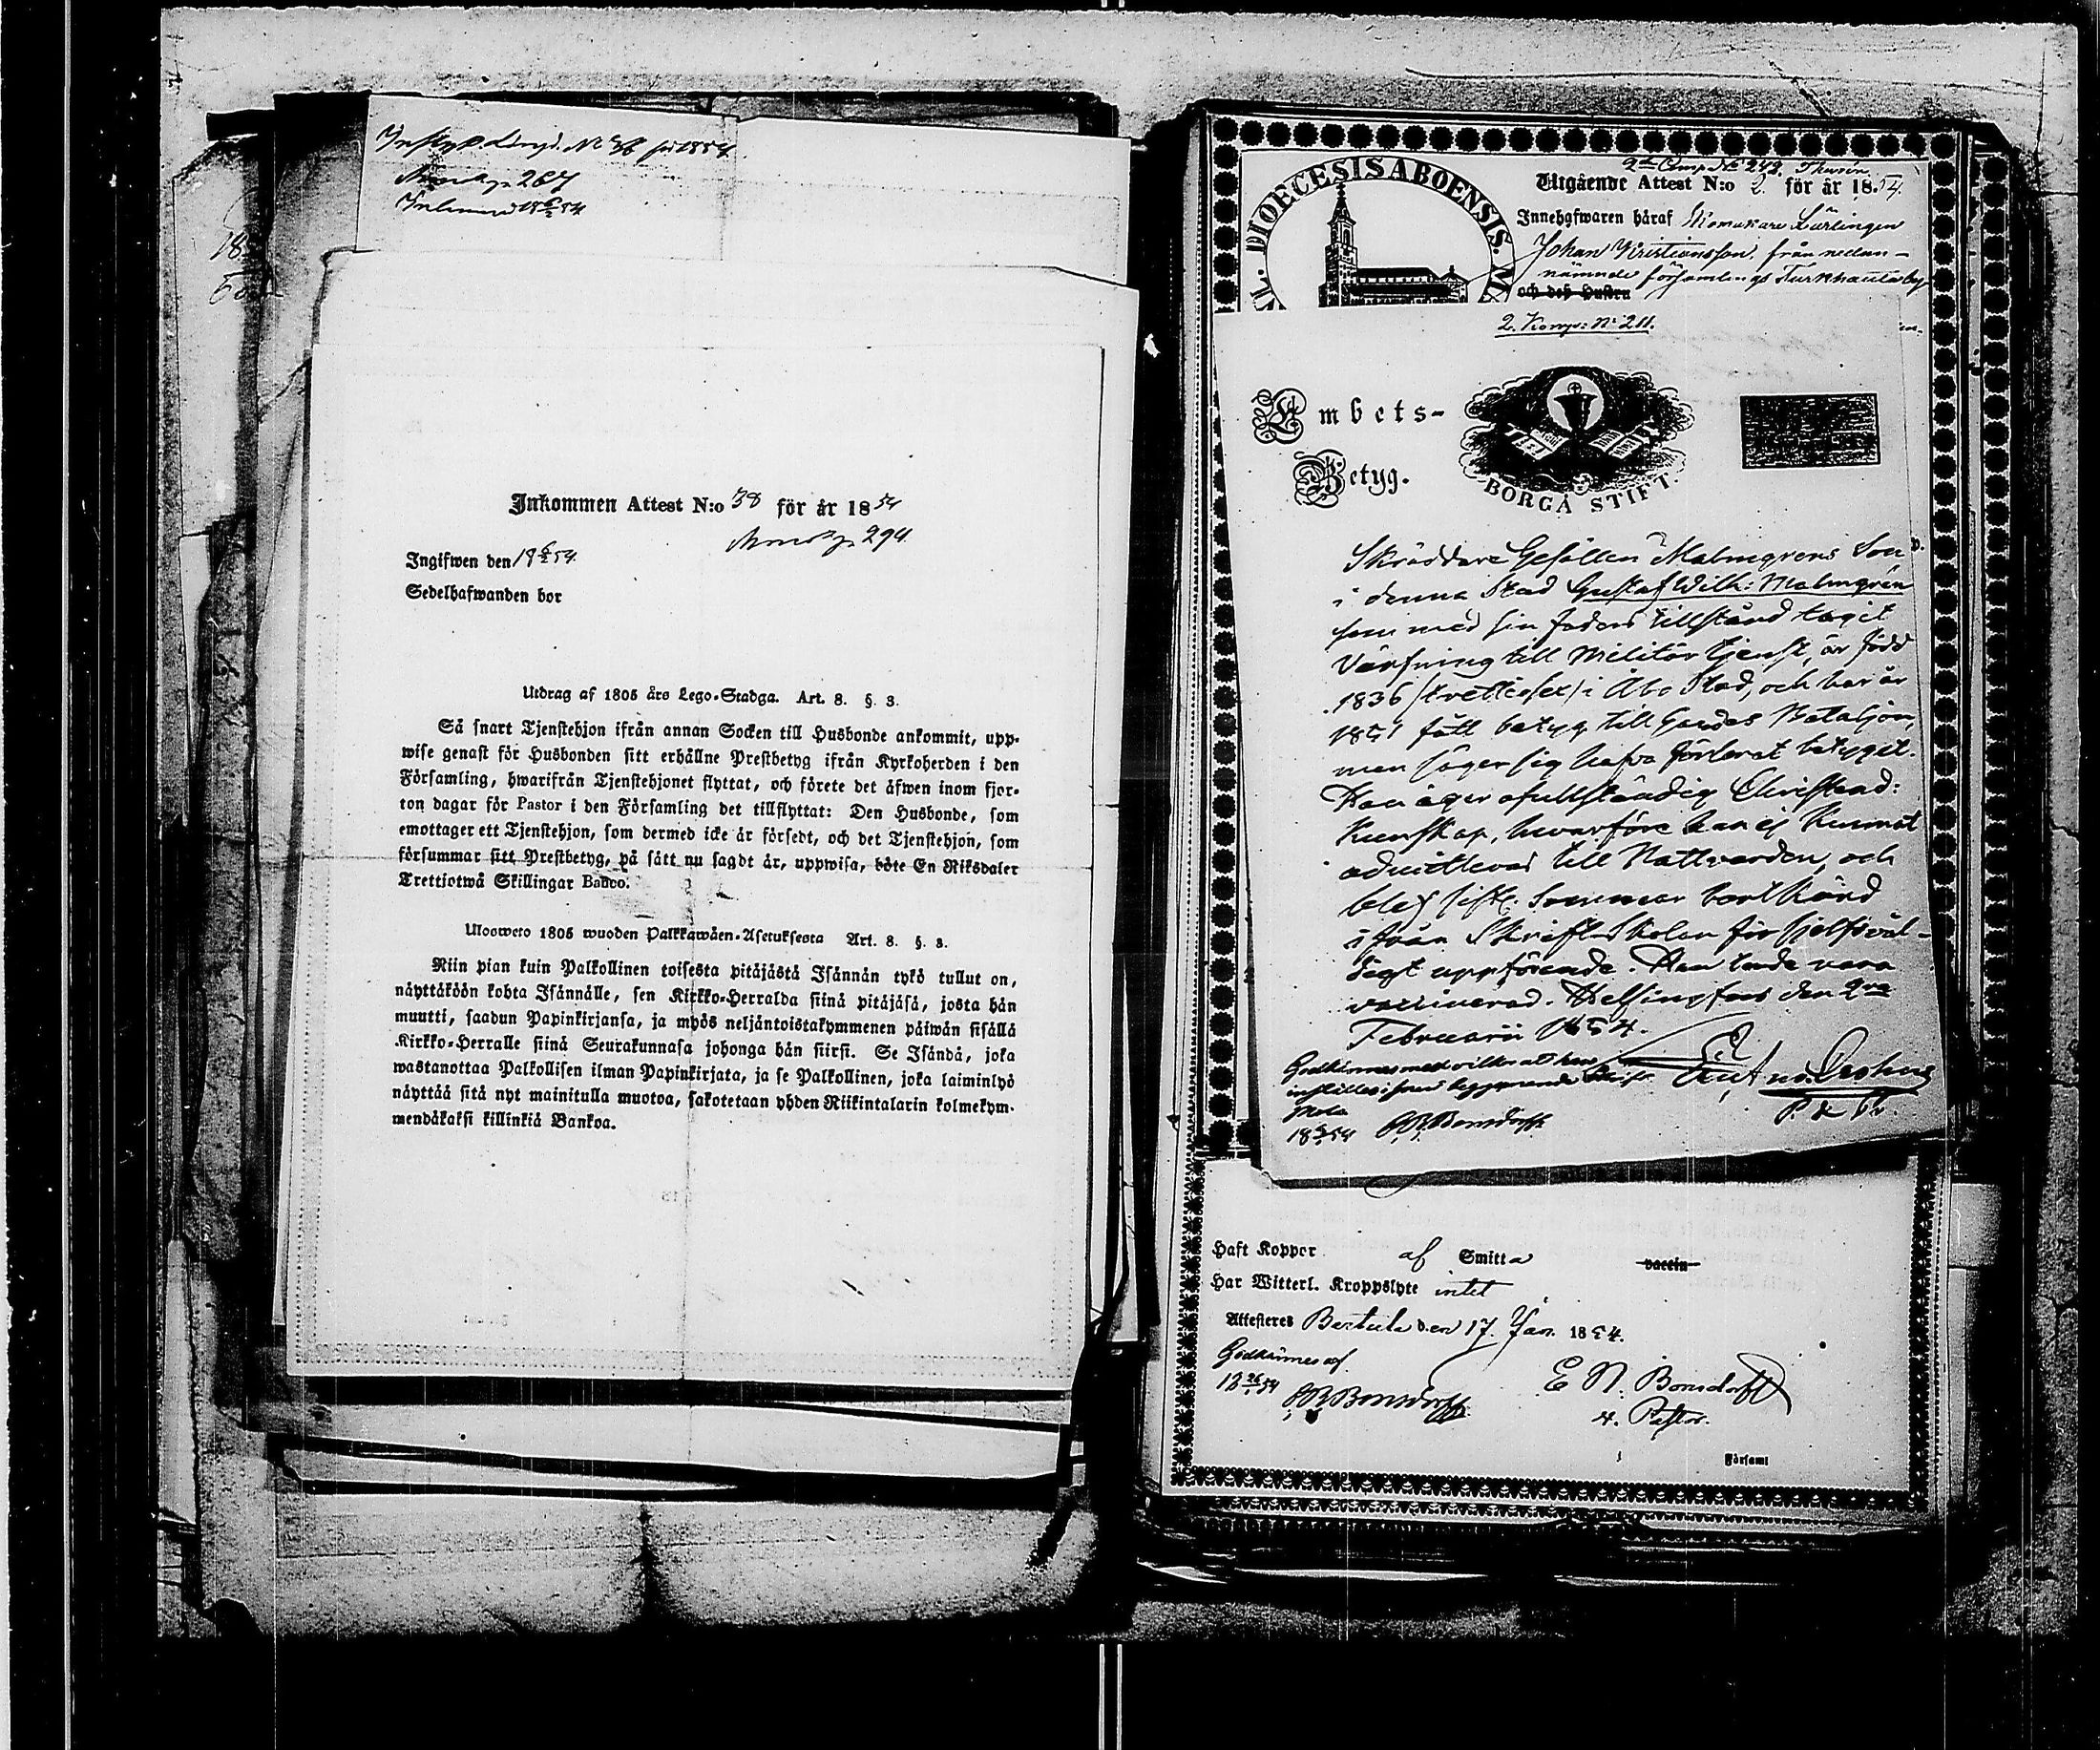 No 36 för 1854
267
18 6/2 54
Inkommen Attest N:o 38 för år 1854
294
Ingifwen den 18 6/2 54.
Sedelhafwanden bor
Utdrag af 1805 års Lego-Stadga. Art. 8. §. 3.
Så snart Tjenstehjon ifrån annan Socken till Husbonde ankommit, upp-
wise genast för Husbonden sitt erhållne Prestbetyg ifrån Kyrkoherden i den
Församling, hwarifrån Tjenstehjonet flyttat, och förete det äfwen inom fjor-
ton dagar för Pastor i den Församling det tillflyttat: Den Husbonde, som
emottager ett Tjenstehjon, som dermed icke är försedt, och det Tjenstehjon, som
försummar sitt Prestbetyg, på sätt nu sagdt är, uppwisa, böte En Riksdaler
Trettiotwå Skillingar Banco.
Ulosweto 1805 wuoden Palkkawäen-Asetuksesta Art. 8. §. 3.
Niin pian kuin Palkollinen toisesta pitäjästä Isännän tykö tullut on,
näyttäköön kohta Isännälle, sen Kirkko-Herralda siinä pitäjäsä, josta hän
muutti, saadun Papinkirjansa, ja myös neljäntoistakymmenen päiwän sisällä
Kirkko-Herralle siinä Seurakunnasa johonga hän siirsi. Se Isändä, joka
wastanottaa Palkollisen ilman Papinkirjata, ja se Palkollinen, joka laiminlyö
näyttää sitä nyt mainitulla muotoa, sakotetaan yhden Riikintalarin kolmekym-
mendäkaksi killinkiä Bankoa.
DIOECESIS ABOENSIS.
2dra Comp. No 242. Thurén
Utgående Attest N:o 2 för år 1854.
Innehafwaren häraf Lärlingen
Johan Kristiansson, från nedan-
nämnde församlings Turkhauta by
och deß Hustru
2. Komp: No 211.
Embets-
Betyg.
BORGÅ STIFT.
Skräddare Gesällen Malmgrens Son
i denna Stad Gustaf Wilh: Malmgrén
som med sin Faders tillstånd tagit
Värfning till Militär tjenst, är född
1836 (trettiosex) i Åbo Stad, och har år
1851 fått betyg till Gardes Bataljon,
men säger sig hafva förlorat betyget.
Han äger ofullständig Christend:
Kunskap, hvarföre han ej kunnat
admitteras till Nattvarden, och
blef sistl. Sommar bortkörd
ifrån Skriftskolan för sjelfsvål-
digt uppförande. Han torde vara
vaccinerad. Helsingfors den 2ra
Februarii 1854.
Godkännes med vilkor att han
18 6/2 54 Bonsdorff.
Haft Koppor af Smitta vaccin
Har Witterl. Kroppslyte intet
Attesteres Bertula den 17. Jan. 1854.
Godkännes af
18 26/1 54 Bonsdorff
E N. Bonsdorff
Pastor.
Församl